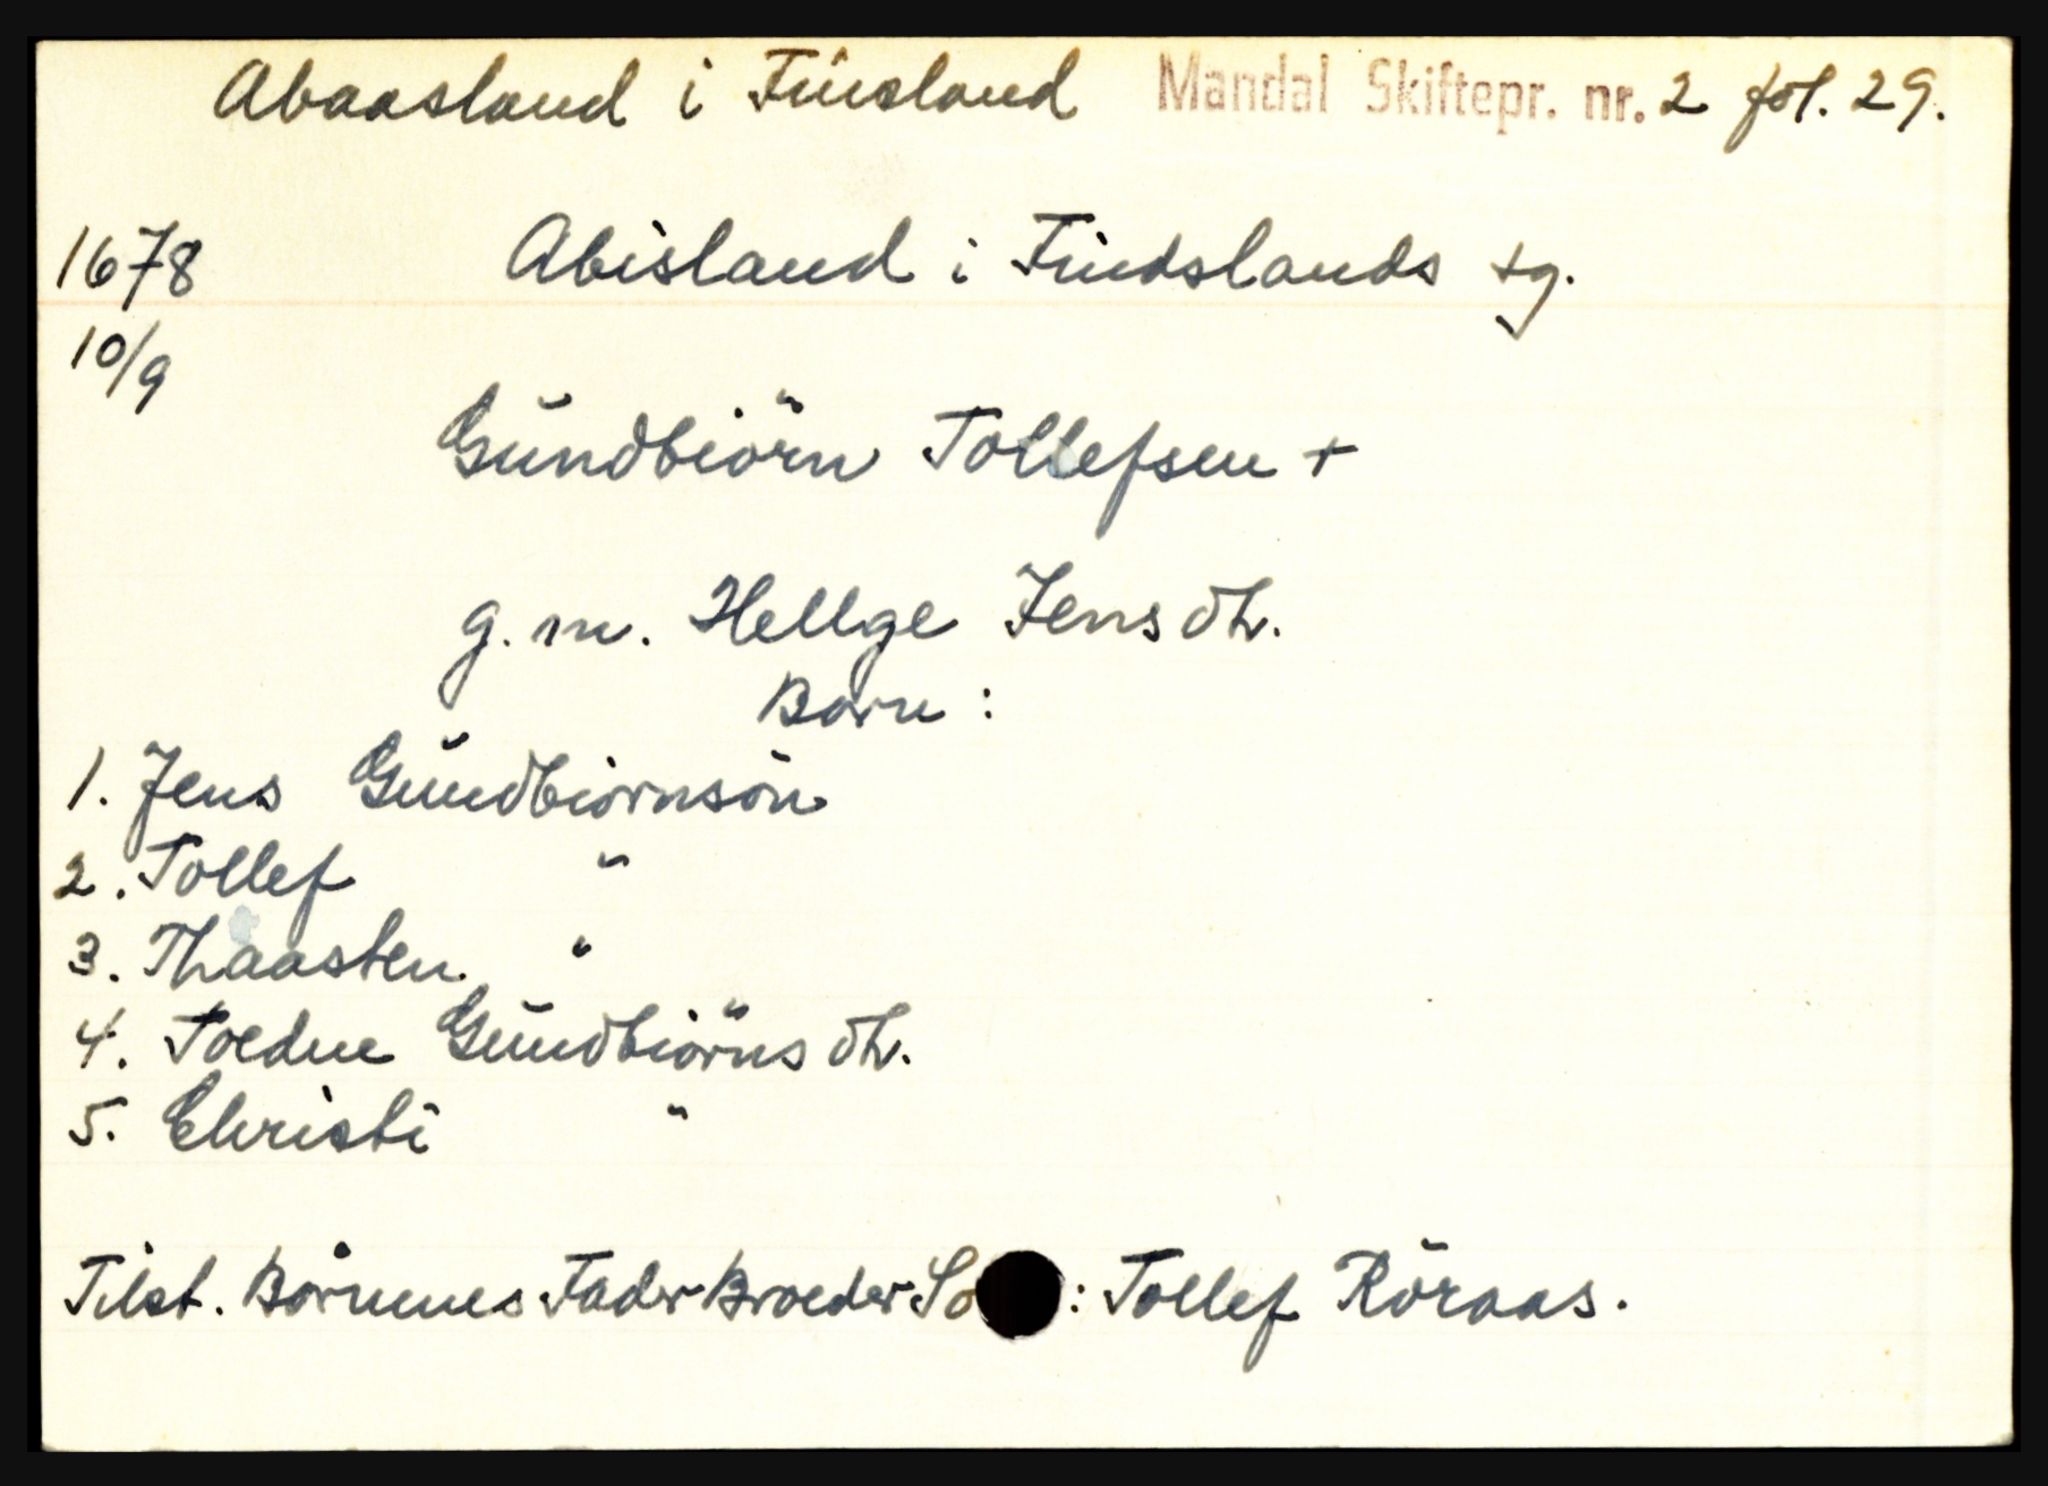 Abaasland i Finsland Mandal Skiftepr. nr. 2 fol. 29.
1678 Abisland i Findslands sg.
10/9
Gŭndbiörn Tollefsen +
g. m. Hellge Jens dtr.
Barn :
1. Jens Gŭndbiörnsön
2. Tollef "
3. Thaasten "
4. Toedne Gŭndbiörns dtr.
5. Christi "
Tilst. Börnenes Fader Broeder So : Tollef Röraas.